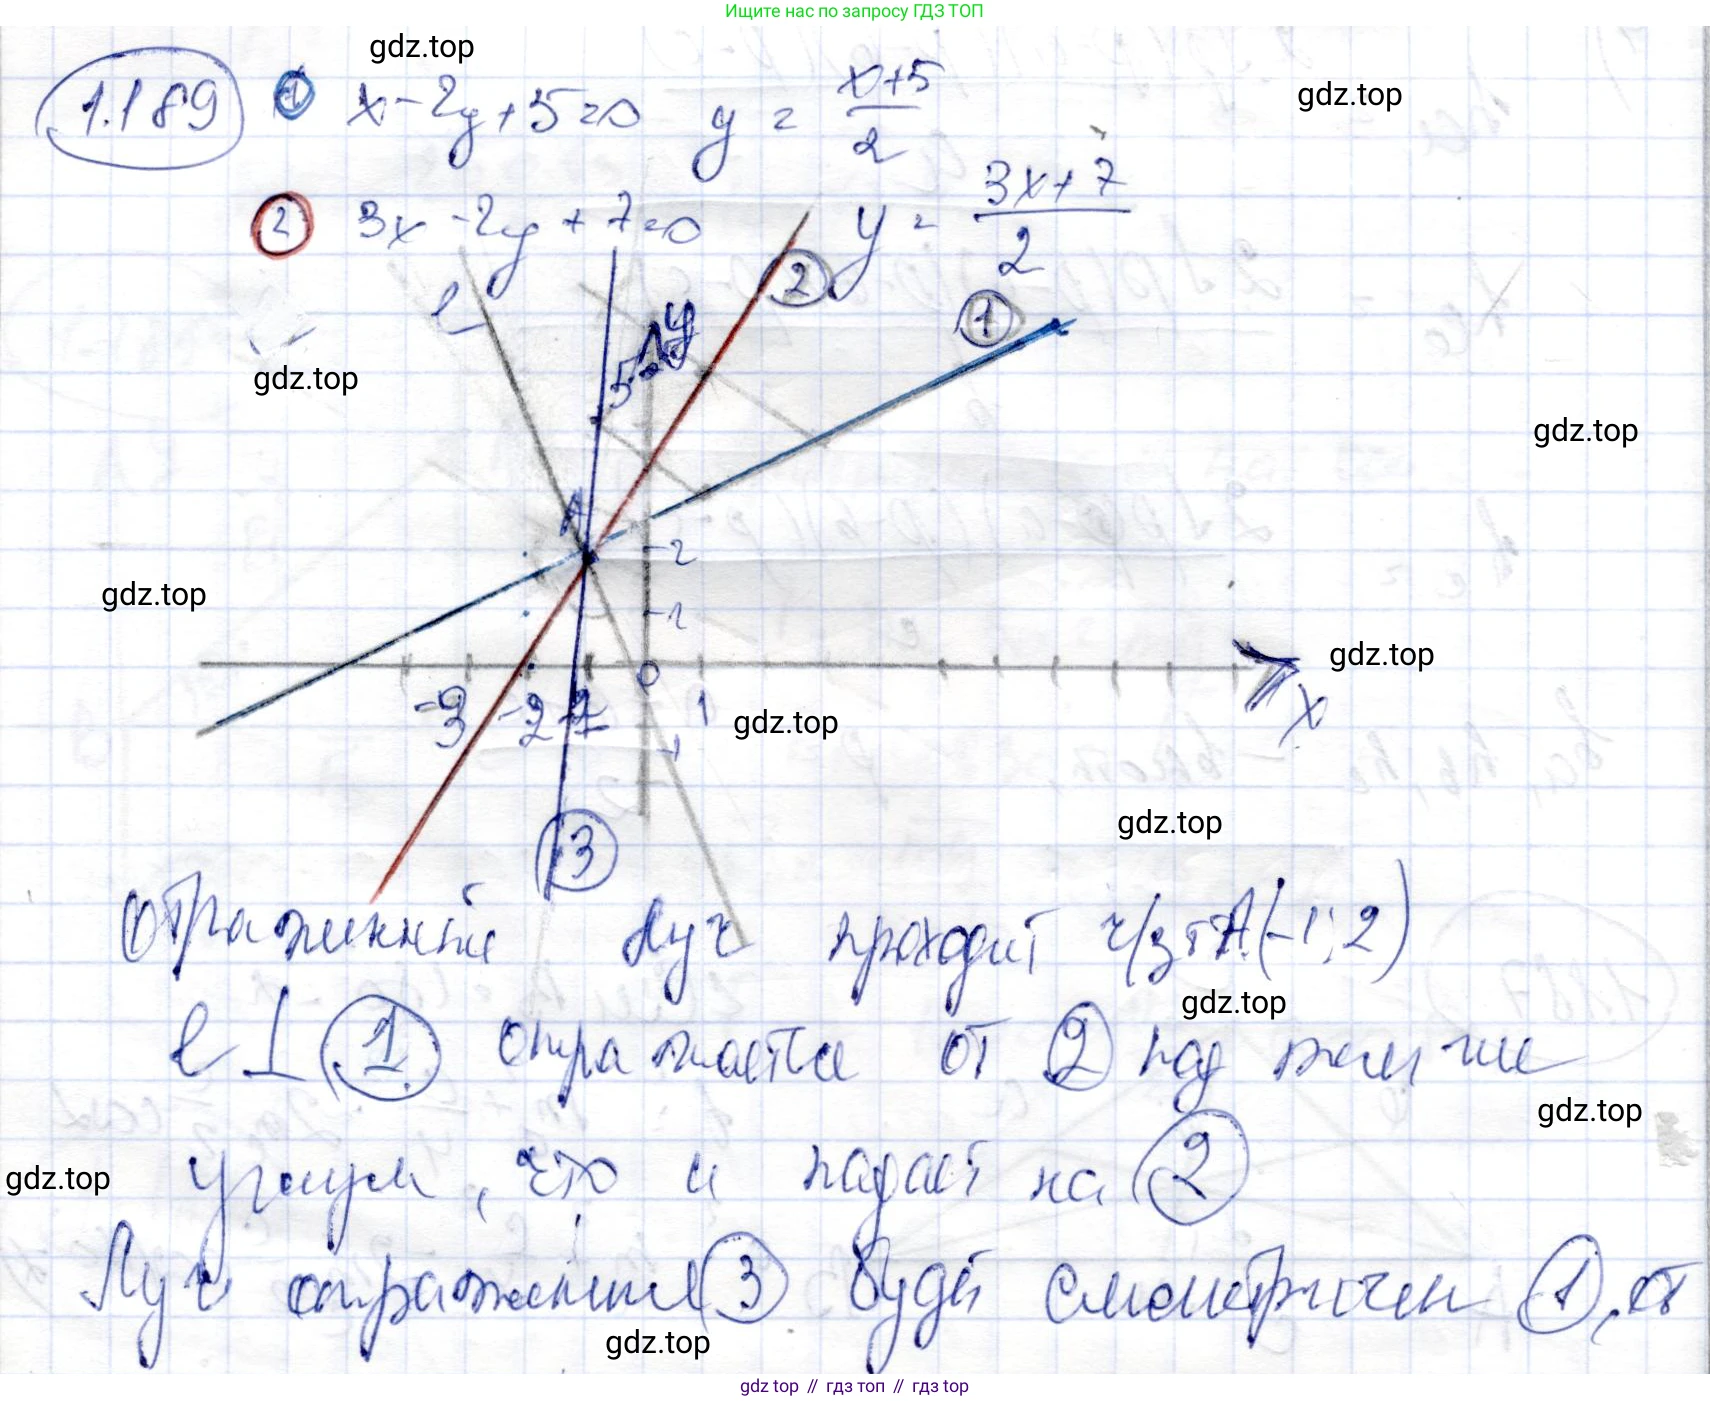 Ищите нас по запросу ГДЗ ТОП
gdz.top
1.189 1 x - 2y + 5 = 0 y = (x+5)/2
gdz.top
2 3x - 2y + 7 = 0 y = (3x+7)/2
2
l
y
1
5
gdz.top
gdz.top
A
2
gdz.top
1
gdz.top
0
-3 -2 -1 1
x
gdz.top
-1
3
gdz.top
отраженный луч проходит ч/з т A(-1; 2)
gdz.top
l ⊥ 1 отражается от 2 под тем же
gdz.top
углом, что и падает на 2
gdz.top
Луч отражения 3 будет симметричен 1, от
gdz.top
gdz top // гдз топ // гдз top